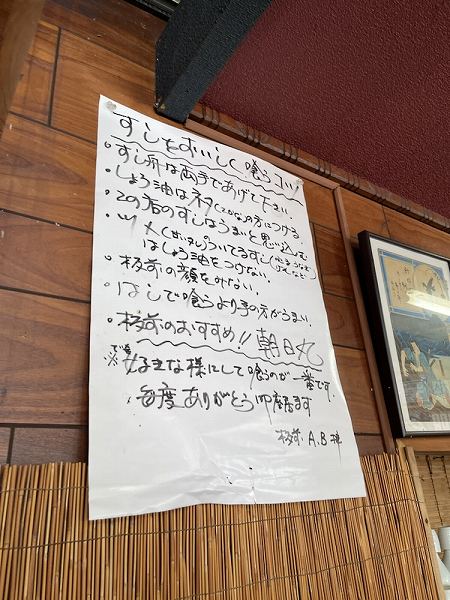 すしをおいしく喰うコツ
・すし皿は両手であげて下さい.
・しょう油はネタ(の方)につける.
・この店のすしはうまいと思い込む.
・ツメ(甘いタレ)のついてるすし
はしょう油をつけない.
・板前の顔をみない.
・はしで喰うより手の方がうまい.
・板前のおすすめ!! 朝日丸
※好きな様にして喰うのが一番です.
毎度ありがとう御座居ます
板前 A.B